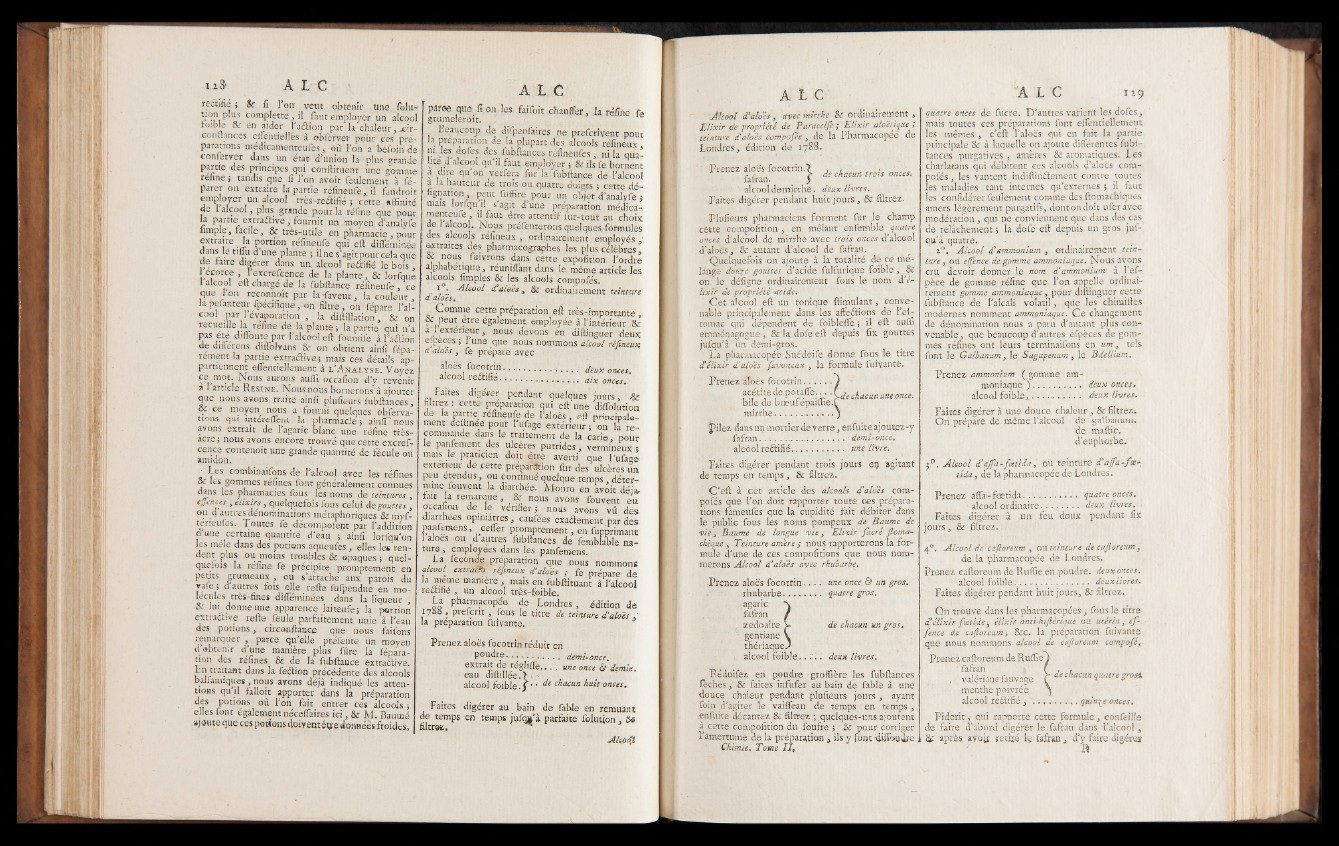 128 A L C
rectifié ; & si l'on veut obtenir une solu-
tion plus complette, il faut employer un alcool
foible & en aider l'action par la chaleur, cir-
constances essentielles à observer pour ces pré-
parations médicamenteuses, où l'on a besoin de
conserver dans un état d'union la plus grande
partie des principes qui constituent une gomme
résine ; tandis que si l'on avoit seulement à sé-
parer ou extraire la partie résineuse, il faudroit
employer un alcool très-rectifié ; cette affinité
de l'alcool, plus grande pour la résine que pour
la partie extractive, fournit un moyen d'analyse
simple, facile, & très-utile en pharmacie, pour
extraire la portion résineuse qui est disséminée
dans le tissu d'une plante ; il ne s'agit pour cela que
de faire digérer dans un alcool rectifié le bois,
l'écorce, l'excrescence de la plante, & lorsque
l'alcool est chargé de la substance résineuse, ce
que l'on reconnoît par la saveur, la couleur,
la pesanteur spécifique, on filtre, on sépare l'al-
cool par l'évaporation, la distillation, & on
recueille la résine de la plante ; la partie qui n'a
pas été dissoute par l'alcool est soumise à l'action
de différens dissolvans & on obtient ainsi sépa-
rément la partie extractive ; mais ces détails ap-
partiennent essentiellement à L'ANALYSE. Voyez
ce mot. Nous aurons aussi occasion d'y revenir
à l'article RESINE. Nous nous bornerons à ajouter
que nous avons traité ainsi plusieurs substances,
& ce moyen nous a fourni quelques observa-
tions qui intéressent la pharmacie ; ainsi nous
avons extrait de l'agaric blanc une résine très-
âcre ; nous avons encore trouvé que cette excres-
cence contenoit une grande quantité de fécule ou
amidon.
Les combinaisons de l'alcool avec les résines
& les gommes résines sont généralement connues
dans les pharmacies sous les noms de teintures,
essences, élixirs, quelquefois sous celui de gouttes,
ou d'autres dénominations métaphoriques & mys-
térieuses. Toutes se décomposent par l'addition
d'une certaine quantité d'eau ; ainsi lorsqu'on
les mêle dans des potions aqueuses, elles les ren-
dent plus ou moins troubles & opaques ; quel-
quefois la résine se précipite promptement en
petits grumeaux, ou s'attache aux parois du
vase ; d'autres fois elle reste suspendue en mo-
lécules très-fines disséminées dans la liqueur,
& lui donne une apparence laiteuse ; la portion
extractive reste seule parfaitement unie à l'eau
des potions, circonstance que nous faisons
remarquer, parce qu'elle présente un moyen
d'obtenir d'une manière plus sûre la sépara-
tion des résines & de la substance extractive.
En traitant dans la section précédente des alcools
balsamiques, nous avons déjà indiqué les atten-
tions qu'il falloit apporter dans la préparation
des potions où l'on fait entrer ces alcools ;
elles sont également nécessaires ici, & M. Baumé
ajoute que ces potions doivent être données froides,
A L C
parce que si on les faisoit chauffer, la résine se
grumeleroit.
Beaucoup de dispensaires ne prescrivent pour
la préparation de la plupart des alcools résineux,
ni les doses des substances résineuses, ni la qua-
lité d'alcool qu'il faut employer ; & ils se bornent
à dire qu'on versera sur la substance de l'alcool
à la hauteur de trois ou quatre doigts ; cette dé-
signation, peut suffire pour un objet d'analyse ;
mais lorsqu'il s'agit d'une préparation médica-
menteuse, il faut être attentif sur-tout au choix
de l'alcool. Nous présenterons quelques formules
des alcools résineux, ordinairement employés,
extraites des pharmacographes les plus célèbres,
& nous suivrons dans cette exposition l'ordre
alphabétique, réunissant dans le même article les
alcools simples & les alcools composés.
1°. Alcool d'aloès, & ordinairement teinture
d'aloès.
Comme cette préparation est très-importante,
& peut être également employée à l'intérieur &
à l'extérieur, nous devons en distinguer deux
espèces ; l'une que nous nommons alcool résineux
d'aloès, se prépare avec
aloès socotrin............... deux onces.
alcool rectifié............... dix onces.
Faites digérer pendant quelques jours, &
filtrez : cette préparation qui est une dissolution
de la partie résineuse de l'aloès, est principale-
ment destinée pour l'usage extérieur ; on la re-
commande dans le traitement de la carie, pour
le pansement des ulcères putrides, vermineux ;
mais le praticien doit être averti que l'usage
extérieur de cette préparation sur des ulcères un
peu étendus, ou continué quelque temps, déter-
mine souvent la diarrhée. Monro en avoit déjà
fait la remarque, & nous avons souvent eu
occasion de le vérifier ; nous avons vu des
diarrhées opiniâtres, causées exactement par des
pansemens, cesser promptement, en supprimant
l'aloès ou d'autres substances de semblable na-
ture, employées dans les pansemens.
La seconde préparation que nous nommons
alcool extracto résineux d'aloès ; se prépare de
la même manière, mais en substituant à l'alcool
rectifié, un alcool très-foible.
La pharmacopée de Londres, édition de
1788, prescrit, sous le titre de teinture d'aloès,
la préparation suivante.
Prenez aloès socotrin réduit en
poudre........... demi-once.
extrait de réglisse.... une once & demie.
eau distillée. }
alcool foible. } .. de chacun huit onces.
Faites digérer au bain de sable en remuant
de temps en temps jusqu'à parfaite solution, &
filtrez.
Alcool
A L C
Alcool d'aloès, avec mirrhe & ordinairement,
Elixir de propriété de Paracelse ; Elixir aloëtique ;
teinture d'aloès composée, de la Pharmacopée de
Londres, édition de 1788.
Prenez aloès socotrin. }
safran. } de chacun trois onces.
alcool de mirrhe. deux livres.
Faites digérer pendant huit jours, & filtrez.
Plusieurs pharmaciens forment sur le champ
cette composition, en mêlant ensemble quatre
onces d'alcool de mirrhe avec trois onces d'alcool
d'aloès, & autant d'alcool de safran.
Quelquefois on ajoute à la totalité de ce mé-
lange douze gouttes d'acide sulfurique foible, &
on le désigne ordinairement sous le nom d'é-
lixir de propriété acide.
Cet alcool est un tonique stimulant, conve-
nable principalement dans les affections de l'es-
tomac qui dépendent de foiblesse ; il est aussi
emménagogue, & la dose est depuis six gouttes
jusqu'à un demi-gros.
La pharmacopée Suédoise donne sous le titre
d'élixir d'aloès savoneux, la formule suivante.
Prenez aloès socotrin...... }
acétite de potasse.... }
bile de bœuf épaissie. } de chacun une once.
mirrhe............ }
Pilez dans un mortier de verre, ensuite ajoutez-y
safran................. demi-once.
alcool rectifié............ une livre.
Faites digérer pendant trois jours en agitant
de temps en temps, & filtrez.
C'est à cet article des alcools d'aloès com-
posés que l'on doit rapporter toute ces prépara-
tions fameuses que la cupidité fait débiter dans
le public sous les noms pompeux de Baume de
vie, Baume de longue vie, Elixir sacré stoma-
chique, Teinture amère ; nous rapporterons la for-
mule d'une de ces compositions que nous nom-
merons Alcool d'aloès avec rhubarbe.
Prenez aloès socottin.... une once & un gros.
rhubarbe........ quatre gros.
agaric }
safran }
zedoaire } de chacun un gros.
gentiane }
thériaque }
alcool foible...... deux livres.
Réduisez en poudre grossière les substances
sèches, & faites infuser au bain de sable à une
douce chaleur pendant plusieurs jours, ayant
soin d'agiter le vaisseau de temps en temps,
ensuite décantez & filtrez ; quelques-uns ajoutent
à cette composition du soufre ; & pour corriger
l'amertume de la préparation, ils y font dissoudre
Chimie. Tome II.
A L C 129
quatre onces de sucre. D'autres varient les doses,
mais toutes ces préparations sont essentiellement
les mêmes, c'est l'aloès qui en fait la partie
principale & à laquelle on ajoute différentes subs-
tances purgatives, amères & aromatiques. Les
charlatans qui débitent ces alcools d'aloès com-
posés, les vantent indistinctement contre toutes
les maladies tant internes qu'externes ; il faut
les considérer seulement comme des stomachiques
amers légèrement purgatifs, dont on doit user avec
modération, qui ne conviennent que dans des cas
de relâchement ; la dose est depuis un gros jus-
qu'à quatre.
2°. Alcool d'ammonium, ordinairement tein-
ture, ou essence de gomme ammoniaque. Nous avons
cru devoir donner le nom d'ammonium à l'es-
pèce de gomme résine que l'on appelle ordinai-
rement gomme ammoniaque, pour distinguer cette
substance de l'alcali volatil, que les chimistes
modernes nomment ammoniaque. Ce changement
de dénomination nous a paru d'autant plus con-
venable, que beaucoup d'autres espèces de gom-
mes résines ont leurs terminaisons en um, tels
sont le Galbanum, le Sagapenum, le Bdellium.
Prenez ammonium ( gomme am-
moniaque ).......... deux onces.
alcool foible........... deux livres.
Faites digérer à une douce chaleur, & filtrez.
On prépare de même l'alcool de galbanum.
de mastic.
d'euphorbe.
3°. Alcool d'assa-fœtida, ou teinture d'assa-fœ-
tida, de la pharmacopée de Londres.
Prenez assa-fœtida........... quatre onces.
alcool ordinaire.......... deux livres.
Faites digérer à un feu doux pendant six
jours, & filtrez.
4°. Alcool de castoreum, ou teinture de castoreum,
de la pharmacopée de Londres.
Prenez castoreum de Russie en poudre. deux onces.
alcool foible................ deux livres.
Faites digérer pendant huit jours, & filtrez.
On trouve dans les pharmacopées, sous le titre
d'élixir fœtide, élixir anti-histérique ou utérin, es-
sence de castoreum, &c. la préparation suivante
que nous nommons alcool de castoreum composé.
Prenez castoreum de Russie }
safran }
valériane sauvage } de chacun quatre gros.
menthe poivrée }
alcool rectifié,......... quinze onces.
Piderit, qui rapporte cette formule, conseille
de faire d'abord digérer le safran dans l'alcool,
& après avoir retiré le safran, d'y faire digérer
R